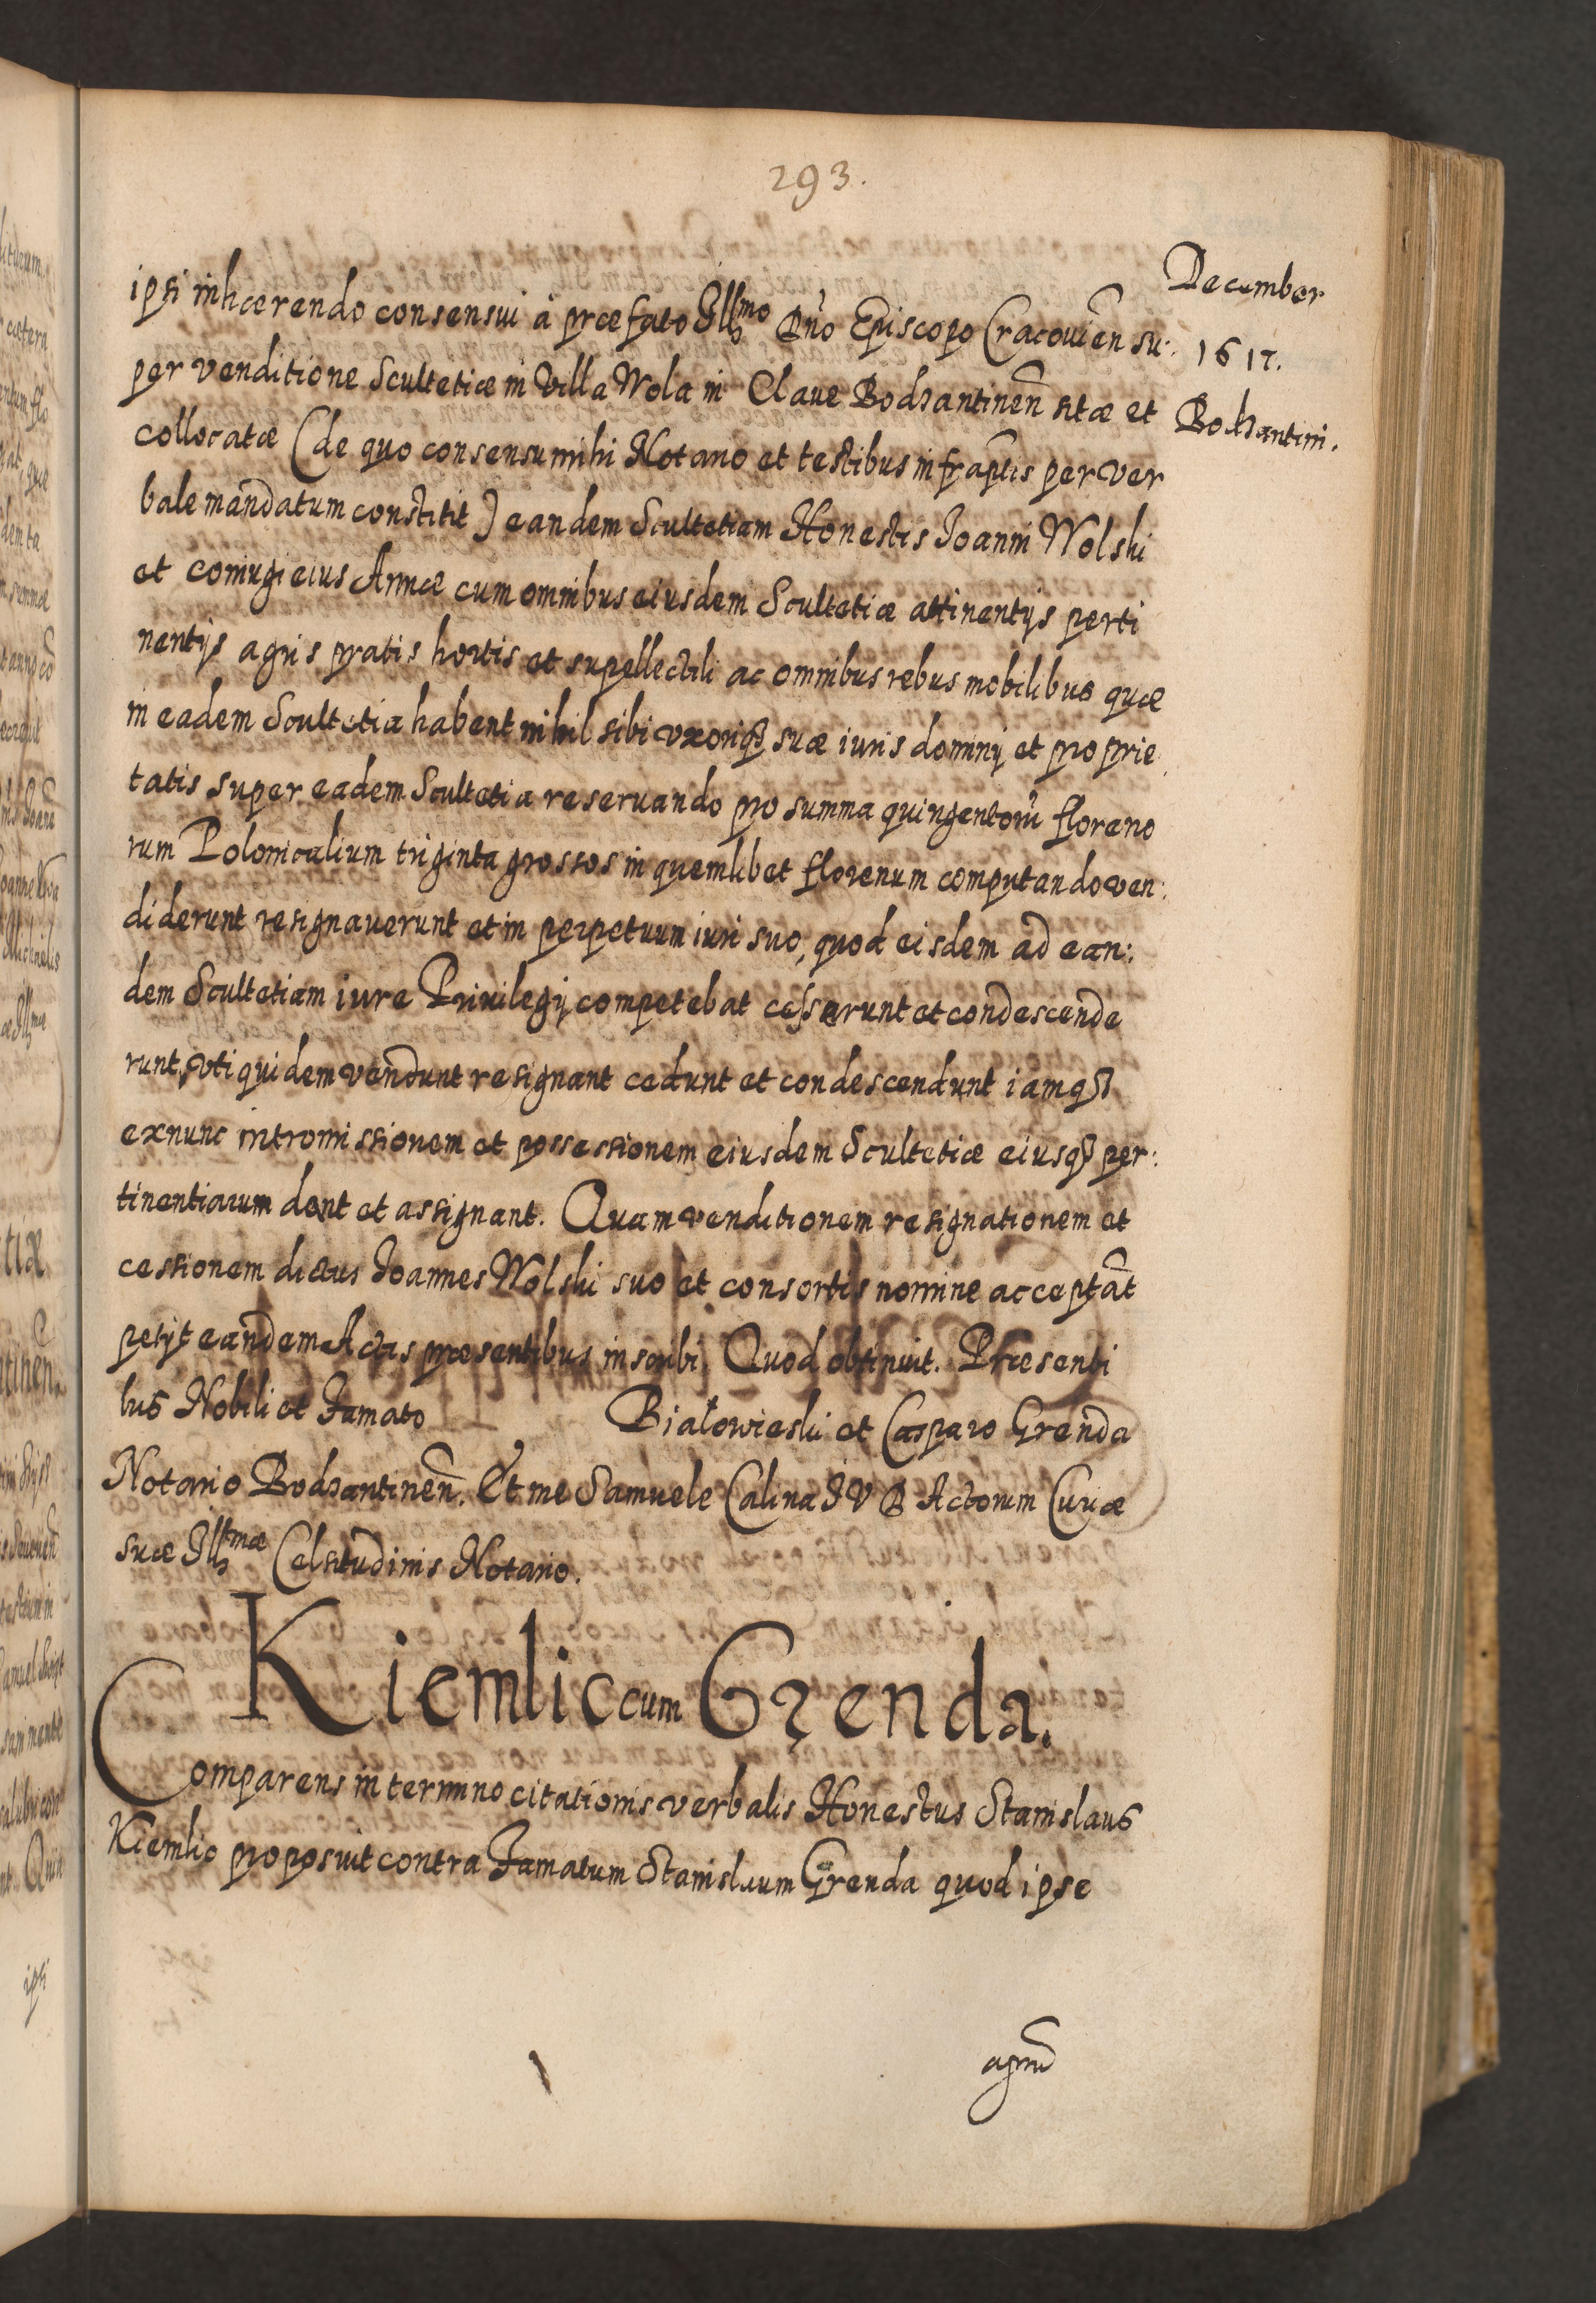 293.
December
1617.
Bodzantini.
ipsi inhærendo consensui à præfato Illmo Dno Episcopo Cracouien su:
per venditione Scultetiæ in Villa Wola in Claue Bodzantinen sitæ et
collocatæ (de quo consensu mihi Notario et testibus infraptis per ver
bale mandatum constitit) eandem Scultetiam Honestis Joanni Wolski
et coniugi eius Annæ cum omnibus eiusdem Scultetiæ attinentijs perti
nentijs agris pratis hortis et supellectili ac omnibus rebus mobilibus quæ
in eadem Scultetia habent nihil sibi vxoriq₃ suæ iuris dominij et proprie
tatis super eadem Scultetia reseruando pro summa quingentorū floreno
rum Polonicalium triginta grossos in quemlibet florenum computando ven:
diderunt resignauerunt et in perpetuum iuri suo, quod eisdem ad ean:
dem Scultetiam iure Priuilegij competebat cesserunt et condescende
runt, vti quidem vendunt resignant cedunt et condescendunt iamq₃
exnunc intromissionem et possessionem eiusdem Scultetiæ eiusq₃ per:
tinentiarum dent et assignant. Quam venditionem resignationem et
cessionem dictus Joannes Wolski suo et consortis nomine acceptat
petijt eandem Actis præsentibus inscribi. Quod obtinuit. Præsenti
bus Nobili et Famato Białowieski et Casparo Grenda
Notario Bodzantinen. Et me Samuele Calina I V B Actorum Curiæ
suæ Illmæ Celsitudinis Notario.
Kiemlic cum Grenda.
Comparens in termino citationis verbalis Honestus Stanislaus
Kiemlic proposuit contra Famatum Stanislaum Grenda quod ipse